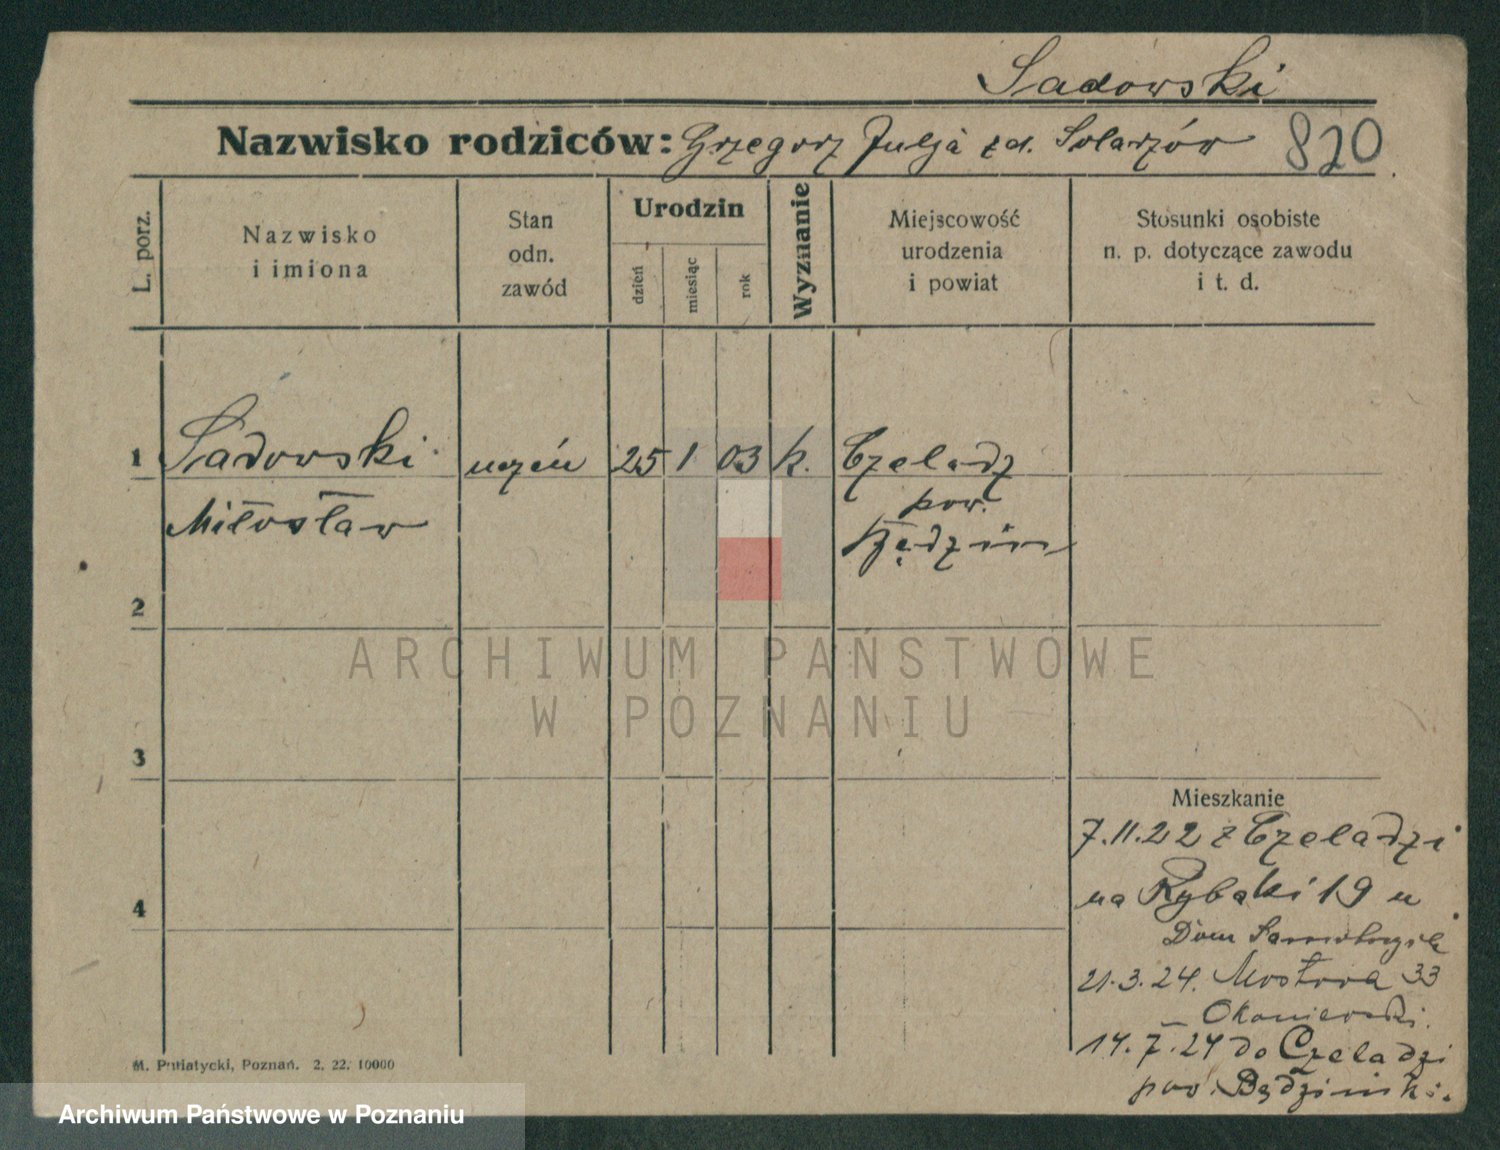 Sadowski
Nazwisko rodziców: Grzegorz Julja zd. Solarzów 820
L. porz.
Nazwisko
i imiona
Stan
odn.
zawód
Urodzin
dzień
miesiąc
rok
Wyznanie
Miejscowość
urodzenia
i powiat
Stosunki osobiste
n. p. dotyczące zawodu
i t. d.
1 Sadowski uczeń 25 1 03 k. Czeladz
Miłosław pow.
Będzin
2
3
4
Mieszkanie
7.11.22 z Czeladzi
na Rybaki 19 u
Dom
21.3.24. Mostowa 33
14.7.24 do Czeladzi
pow. Będzinski.
M. Putiatycki, Poznań. 2. 22. 10000
ARCHIWUM PAŃSTWOWE
W POZNANIU
Archiwum Państwowe w Poznaniu